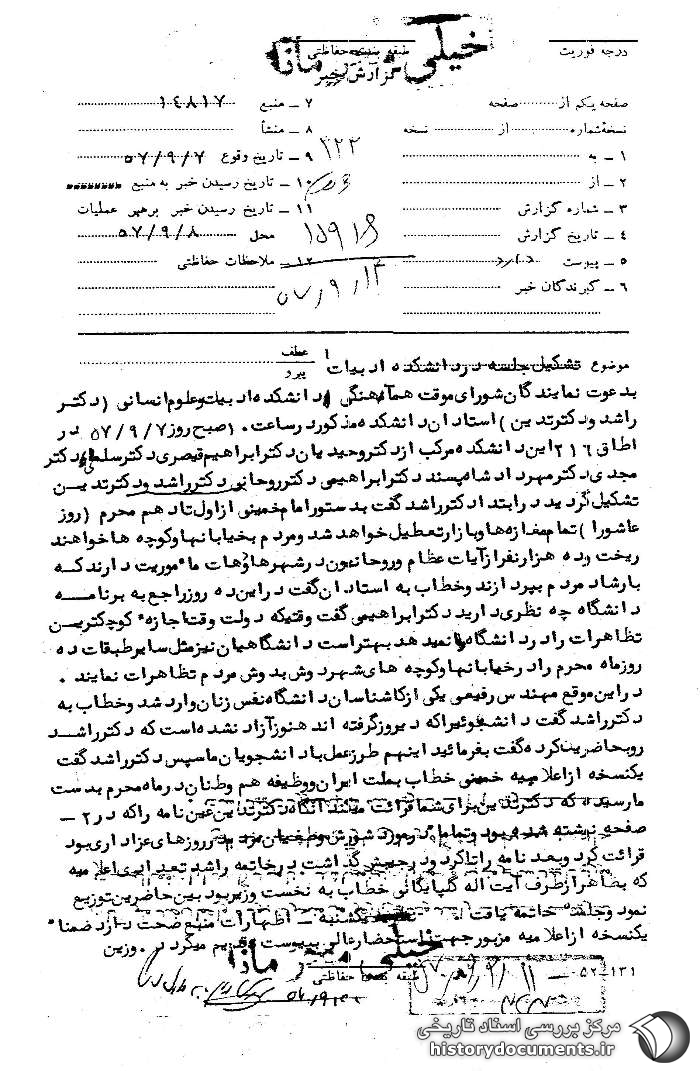 درجه فوریت
طبقه بندی حفاظتی
خیلی محرمانه
گزارش خبر
صفحه یکم از صفحه
نسخه شماره از نسخه
۱ ـ به ۳۲۲
۲ ـ از
۳ ـ شماره گزارش
۴ ـ تاریخ گزارش
۵ ـ پیوست دارد
۶ ـ گیرندگان خبر
۷ ـ منبع ۱۴۸۱۷
۸ ـ منشأ
۹ ـ تاریخ وقوع ۵۷/۹/۷
۱۰ ـ تاریخ رسیدن خبر به منبع
۱۱ ـ تاریخ رسیدن خبر برهبر عملیات
محل ۵۷/۹/۸
۱۲ ـ ملاحظات حفاظتی
موضوع تشکیل جلسه در دانشکده ادبیات
عطف
پیرو
بدعوت نمایندگان شورای موقت هماهنگی دانشکده ادبیات و علوم انسانی (دکتر
راشد و دکتر تدین) استادان دانشکده مذکور در ساعت ۱۰ صبح روز ۵۷/۹/۷ در
اطاق ۲۱۶ این دانشکده مرکب از دکتر وحیدیان دکتر ابراهیم قیصری دکتر سلمی دکتر
مجدی دکتر مهرداد شاه پسند دکتر ابراهیمی دکتر روحانی دکتر راشد و دکتر تدین
تشکیل گردید در ابتدا دکتر راشد گفت بدستور امام خمینی از اول تا دهم محرم (روز
عاشورا) تمام مغازه ها و بازار تعطیل خواهد شد و مردم بخیابانها و کوچه ها خواهند
ریخت و ده هزار نفر از آیات عظام و روحانیون در شهرها و دهات ماموریت دارند که
بارشاد مردم بپردازند و خطاب به استادان گفت در این ده روز راجع به برنامه
دانشگاه چه نظری دارید دکتر ابراهیمی گفت وقتیکه دولت وقت اجازه کوچکترین
تظاهرات را در دانشگاه نمیدهد بهتر است دانشگاهیان نیز مثل سایر طبقات ده
روز ماه محرم را در خیابانها و کوچه های شهر دوش بدوش مردم تظاهرات نمایند .
در این موقع مهندس رفیعی یکی از کاشناسان دانشگاه نفس زنان وارد شد و خطاب به
دکتر راشد گفت دانشجوئیرا که دیروز گرفته اند هنوز آزاد نشده است که دکتر راشد
رو بحاضرین کرده گفت بفرمائید اینهم طرز عمل با دانشجویان ما سپس دکتر راشد گفت
یکنسخه از اعلامیه خمینی خطاب بملت ایران و وظیفه هم وطنان در ماه محرم بدست
ما رسیده که دکتر تدین برای شما قرائت میکند آنگاه دکتر تدین عین نامه را که در ۲ ـ
صفحه نوشته شده بود و تماما در مورد شورش و طغیان مردم در روزهای عزاداری بود
قرائت کرد و بعد نامه را تا کرد و در جیبش گذاشت در خاتمه راشد تعدادی اعلامیه
که بظاهر از طرف آیت اله گلپایگانی خطاب به نخست وزیر بود بین حاضرین توزیع
نمود و جلسه خاتمه یافت یکشنبه ـ اظهارات منبع صحت دارد ضمنا
یکنسخه از اعلامیه مزبور جهت استحضار عالی بپیوست تقدیم میگردد . وزین
خیلی محرمانه
طبقه بندی حفاظتی
۵۲ـ۱۳۱
مرکز بررسی اسناد تاریخی
historydocuments.ir